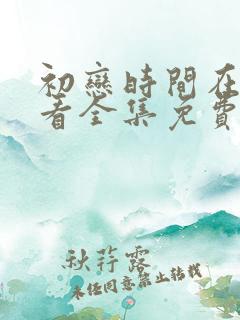 初戀時間在
看全集免費
秋荮露
未经同意禁止转载